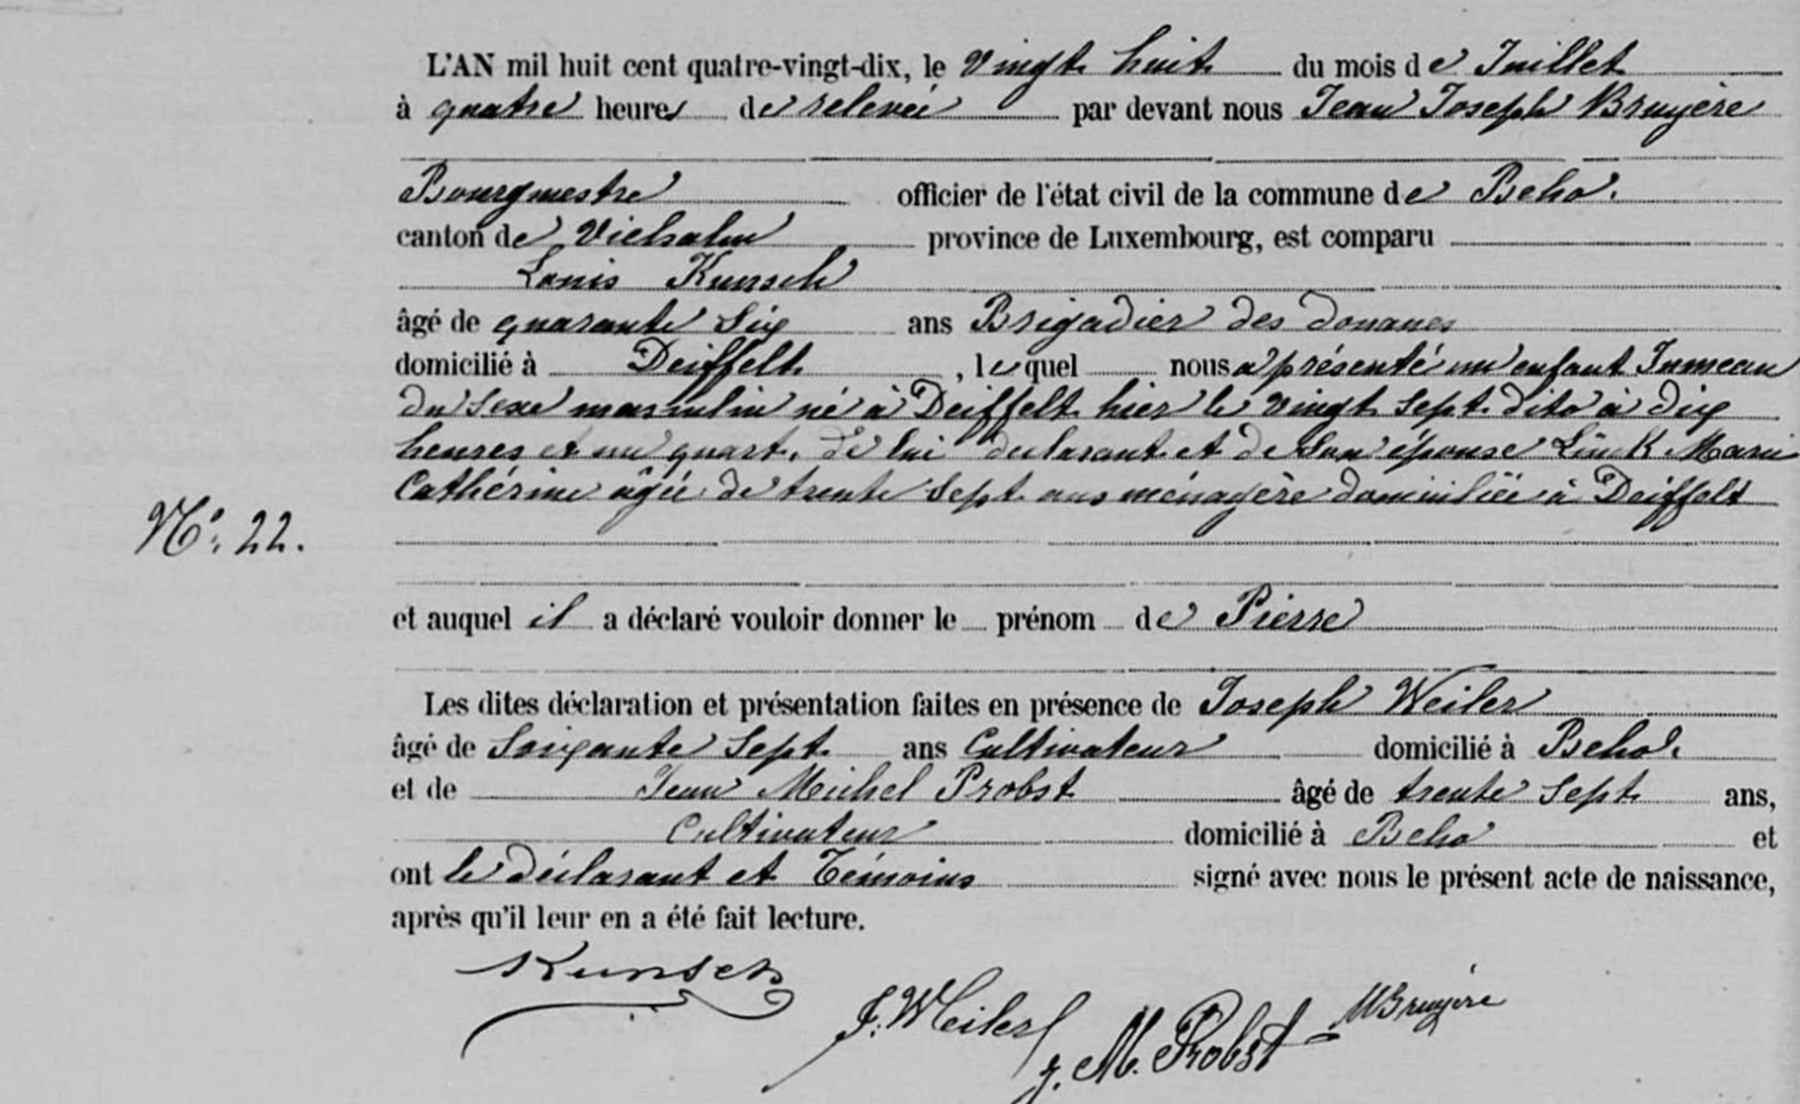 L'AN mil huit cent quatre-vingt-dix, le Vingt huit du mois de Juillet
à quatre heures de relevée par devant nous Jean Joseph Bruyère
Bourgmestre officier de l'état civil de la commune de Beho.
canton de Vielsalm province de Luxembourg, est comparu
Louis Kunsch
âgé de quarante Six ans Brigadier des douanes
domicilié à Deiffelt, lequel nous a présenté un enfant Jumeau
du Sexe masculin né à Deiffelt hier le vingt sept dito à dix
heures et un quart, de lui déclarant et de Son épouse Linck Marie
Cathérine âgée de trente Sept ans ménagère domiciliée à Deiffelt
No. 22.
et auquel il a déclaré vouloir donner le prénom de Pierre
Les dites déclaration et présentation faites en présence de Joseph Weiler
âgé de Soixante Sept ans Cultivateur domicilié à Beho.
et de Jean Michel Probst âgé de trente Sept ans,
Cultivateur domicilié à Beho et
ont le déclarant et Témoins signé avec nous le présent acte de naissance,
après qu'il leur en a été fait lecture.
Kunsch
J. Weiler
J. M. Probst
Bruyère